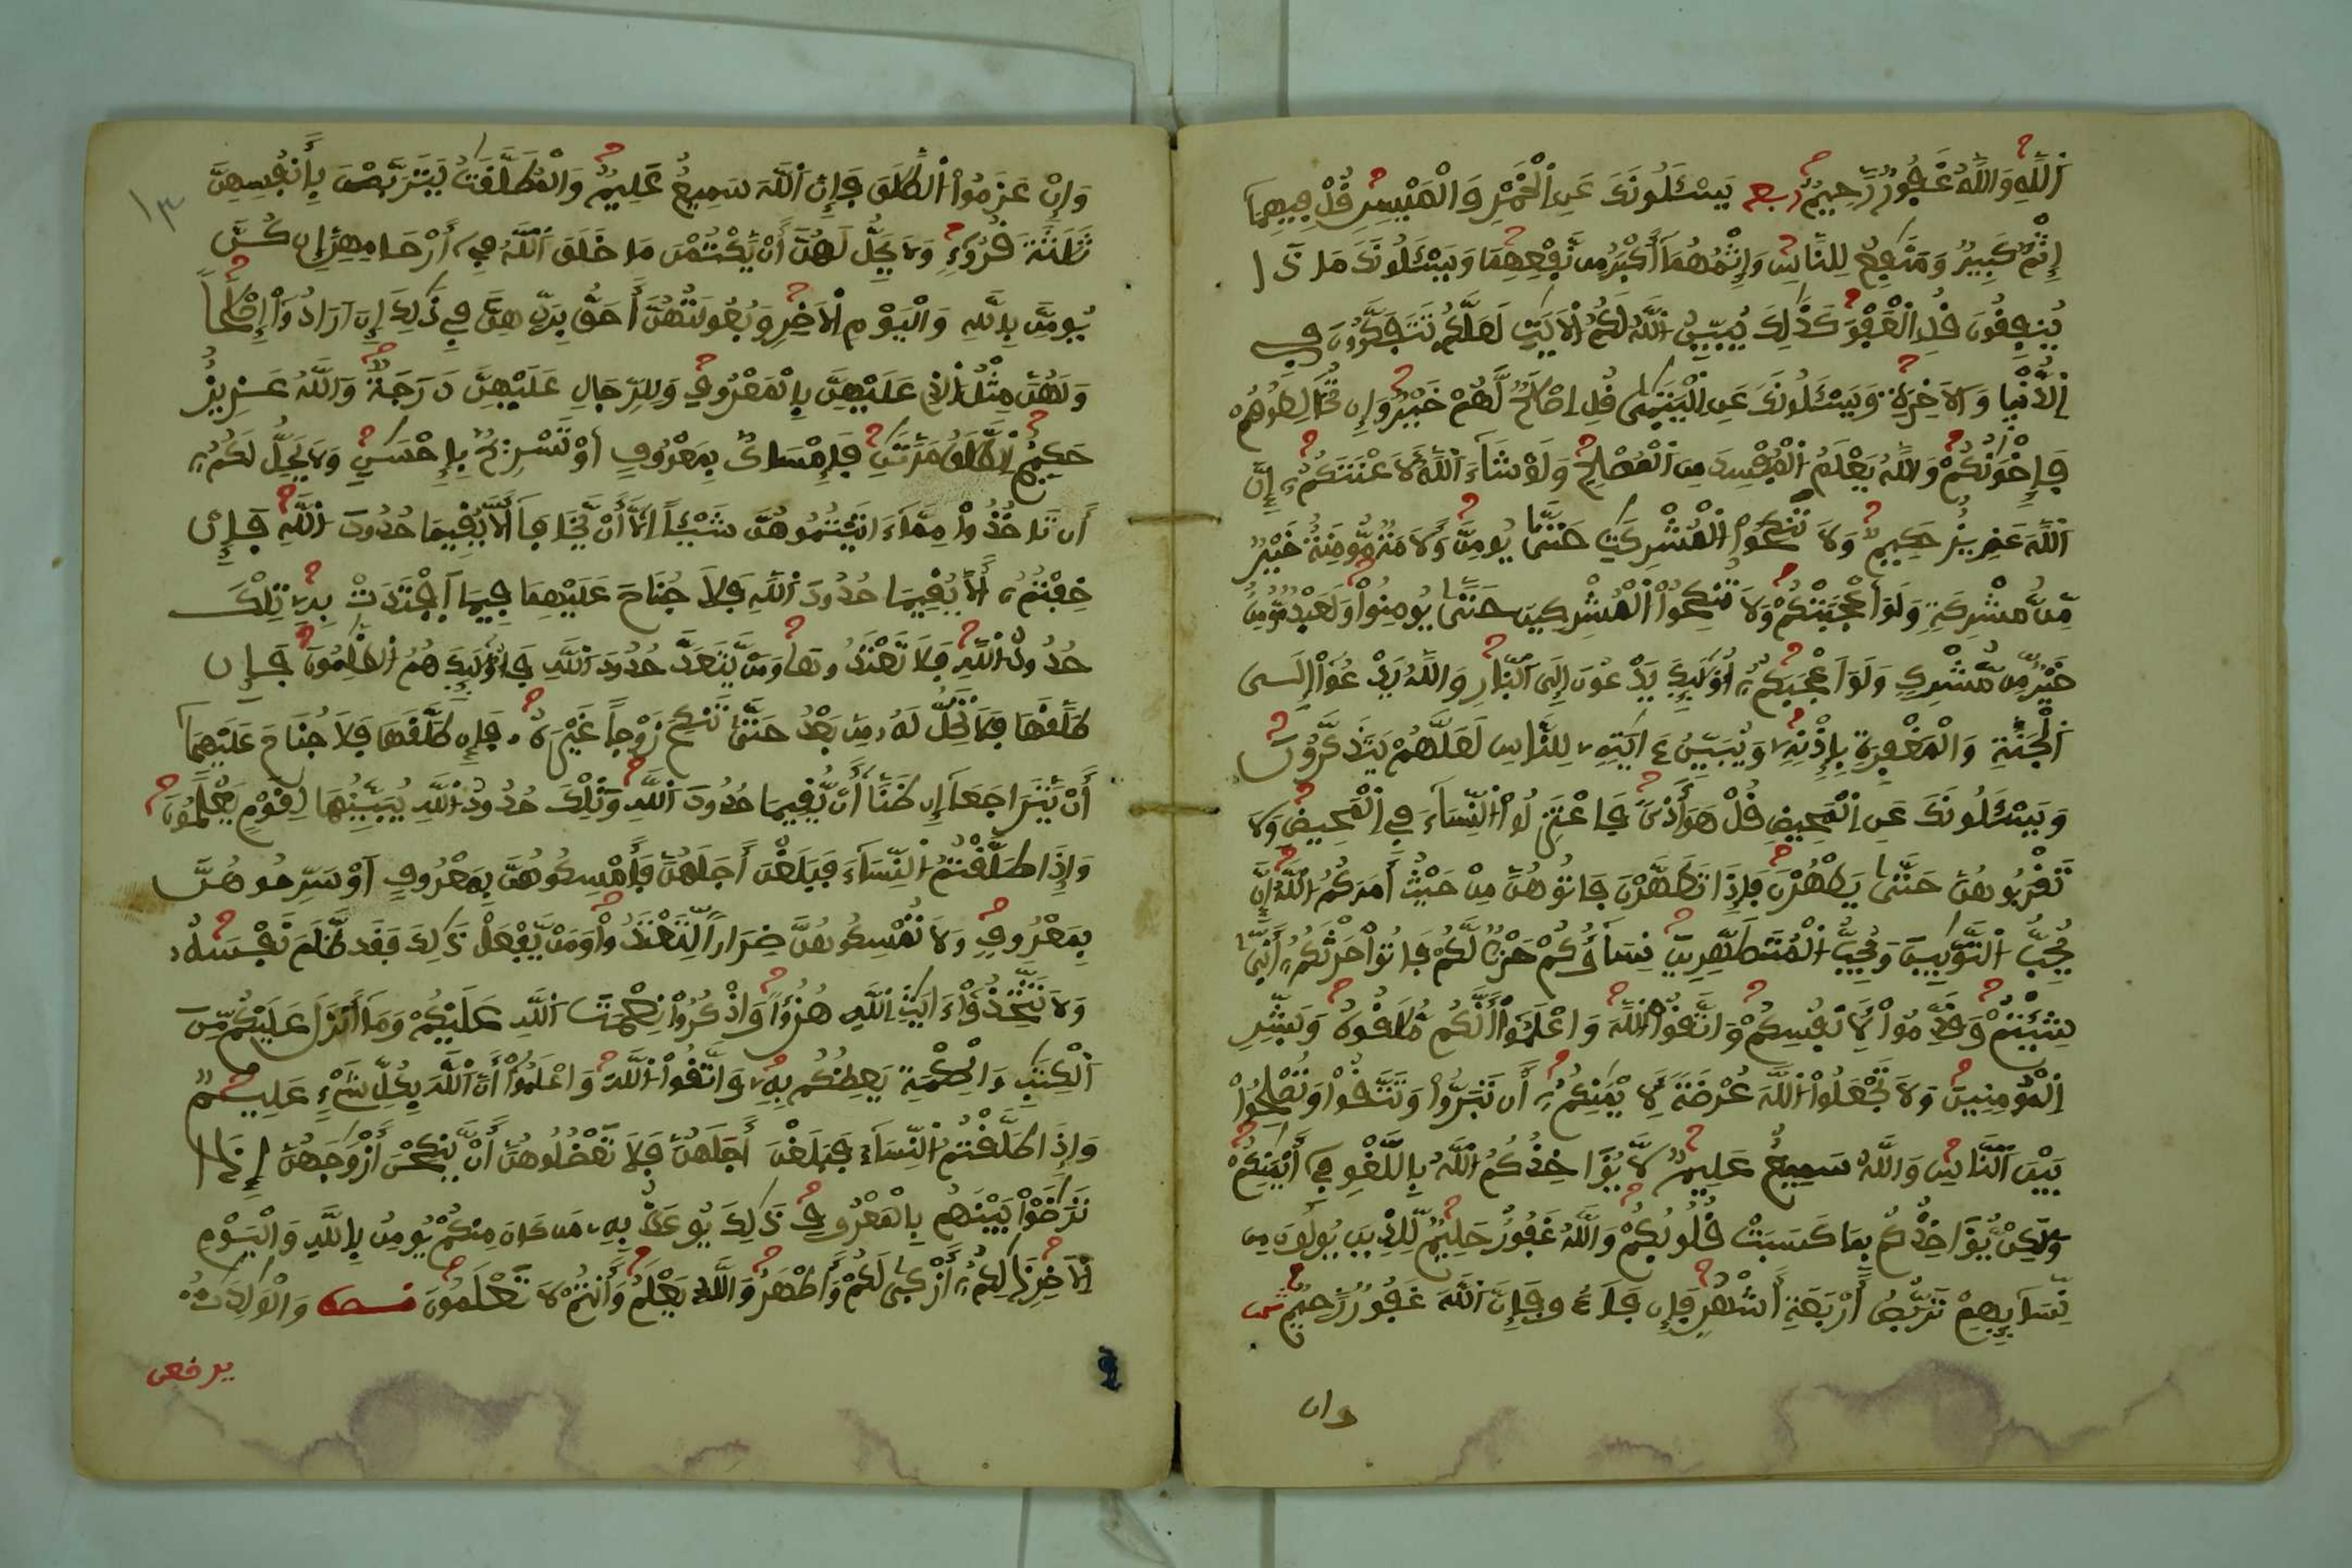 اَ۬للَّهِ وَاللَّهُ غَفُورٌ رَّحِيمٌ ربع يَسْـَٔلُونَكَ عَنِ اِ۬لْخَمْرِ وَالْمَيْسِرِ قُلْ فِيهِمَا
إِثْمٌ كَبِيرٌ وَمَنَٰفِعُ لِلنَّاسِ وَإِثْمُهُمَا أَكْبَرُ مِن نَّفْعِهِمَا وَيَسْـَٔلُونَكَ مَاذَا
يُنفِقُونَ قُلِ اِ۬لْعَفْوَ كَذَٰلِكَ يُبَيِّنُ اُ۬للَّهُ لَكُمُ اُ۬لَايَٰتِ لَعَلَّكُمْ تَتَفَكَّرُونَ فِي
اِ۬لدُّنْيَا وَالَاخِرَةِ وَيَسْـَٔلُونَكَ عَنِ اِ۬لْيَتَٰمَىٰ قُلِ اِصْلَاحٌ لَّهُمْ خَيْرٌ وَإِن تُخَالِطُوهُمْ
فَإِخْوَٰنُكُمْ وَاللَّهُ يَعْلَمُ اُ۬لْمُفْسِدَ مِنَ اَ۬لْمُصْلِحِ وَلَوْ شَاءَ اَ۬للَّهُ لَأَعْنَتَكُمُ إِنَّ
اَ۬للَّهَ عَزِيزٌ حَكِيمٌ وَلَا تَنكِحُواْ اُ۬لْمُشْرِكَٰتِ حَتَّىٰ يُومِنَّ وَلَأَمَةٌ مُّومِنَةٌ خَيْرٌ
مِّن مُّشْرِكَةٍ وَلَوَ اَعْجَبَتْكُمْ وَلَا تُنكِحُواْ اُ۬لْمُشْرِكِينَ حَتَّىٰ يُومِنُواْ وَلَعَبْدٌ مُّومِنٌ
خَيْرٌ مِّن مُّشْرِكٍ وَلَوَ اَعْجَبَكُمُ أُوْلَٰئِكَ يَدْعُونَ إِلَى اَ۬لنَّارِ وَاللَّهُ يَدْعُواْ إِلَى
اَ۬لْجَنَّةِ وَالْمَغْفِرَةِ بِإِذْنِهِ وَيُبَيِّنُ ءَايَٰتِهِ لِلنَّاسِ لَعَلَّهُمْ يَتَذَكَّرُونَ
وَيَسْـَٔلُونَكَ عَنِ اِ۬لْمَحِيضِ قُلْ هُوَ أَذىً فَاعْتَزِلُواْ اُ۬لنِّسَاءَ فِي اِ۬لْمَحِيضِ وَلَا
تَقْرَبُوهُنَّ حَتَّىٰ يَطْهُرْنَ فَإِذَا تَطَهَّرْنَ فَاتُوهُنَّ مِنْ حَيْثُ أَمَرَكُمُ اُ۬للَّهُ إِنَّ اَ۬للَّهَ
يُحِبُّ اُ۬لتَّوَّٰبِينَ وَيُحِبُّ اُ۬لْمُتَطَهِّرِينَ نِسَاؤُكُمْ حَرْثٌ لَّكُمْ فَاتُواْ حَرْثَكُمُ أَنَّىٰ
شِئْتُمْ وَقَدِّمُواْ لِأَنفُسِكُمْ وَاتَّقُواْ اُ۬للَّهَ وَاعْلَمُواْ أَنَّكُم مُّلَٰقُوهُ وَبَشِّرِ
اِ۬لْمُومِنِينَ وَلَا تَجْعَلُواْ اُ۬للَّهَ عُرْضَةً لِّأَيْمَٰنِكُمُ أَن تَبَرُّواْ وَتَتَّقُواْ وَتُصْلِحُواْ
بَيْنَ اَ۬لنَّاسِ وَاللَّهُ سَمِيعٌ عَلِيمٌ لَّا يُؤَاخِذُكُمُ اُ۬للَّهُ بِاللَّغْوِ فِي أَيْمَٰنِكُمْ
وَلَٰكِنْ يُّؤَاخِذُكُم بِمَا كَسَبَتْ قُلُوبُكُمْ وَاللَّهُ غَفُورٌ حَلِيمٌ لِّلَّذِينَ يُولُونَ مِن
نِّسَائِهِمْ تَرَبُّصُ أَرْبَعَةِ أَشْهُرٍ فَإِن فَاءُو فَإِنَّ اَ۬للَّهَ غَفُورٌ رَّحِيمٌ ثمن
وان
١٣
وَإِنْ عَزَمُواْ اُ۬لطَّلَٰقَ فَإِنَّ اَ۬للَّهَ سَمِيعٌ عَلِيمٌ وَالْمُطَلَّقَٰتُ يَتَرَبَّصْنَ بِأَنفُسِهِنَّ
ثَلَٰثَةَ قُرُوءٍ وَلَا يَحِلُّ لَهُنَّ أَنْ يَّكْتُمْنَ مَا خَلَقَ اَ۬للَّهُ فِي أَرْحَامِهِنَّ إِن كُنَّ
يُومِنَّ بِاللَّهِ وَالْيَوْمِ اِ۬لَاخِرِ وَبُعُولَتُهُنَّ أَحَقُّ بِرَدِّهِنَّ فِي ذَٰلِكَ إِنَ اَرَادُواْ إِصْلَٰحاً
وَلَهُنَّ مِثْلُ اُ۬لذِي عَلَيْهِنَّ بِالْمَعْرُوفِ وَلِلرِّجَالِ عَلَيْهِنَّ دَرَجَةٌ وَاللَّهُ عَزِيزٌ
حَكِيمٌ اِ۬لطَّلَٰقُ مَرَّتَٰنِ فَإِمْسَاكٌ بِمَعْرُوفٍ اَوْ تَسْرِيحٌ بِإِحْسَٰنٍ وَلَا يَحِلُّ لَكُمُ
أَن تَاخُذُواْ مِمَّا ءَاتَيْتُمُوهُنَّ شَيْـاً اِلَّا أَنْ يَّخَافَا أَلَّا يُقِيمَا حُدُودَ اَ۬للَّهِ فَإِنْ
خِفْتُمُ أَلَّا يُقِيمَا حُدُودَ اَ۬للَّهِ فَلَا جُنَاحَ عَلَيْهِمَا فِيمَا اَ۪فْتَدَتْ بِهِ تِلْكَ
حُدُودُ اُ۬للَّهِ فَلَا تَعْتَدُوهَا وَمَنْ يَّتَعَدَّ حُدُودَ اَ۬للَّهِ فَأُوْلَٰئِكَ هُمُ اُ۬لظَّٰلِمُونَ فَإِن
طَلَّقَهَا فَلَا تَحِلُّ لَهُ مِن بَعْدُ حَتَّىٰ تَنكِحَ زَوْجاً غَيْرَهُ فَإِن طَلَّقَهَا فَلَا جُنَاحَ عَلَيْهِمَا
أَنْ يَّتَرَاجَعَا إِن ظَنَّا أَنْ يُّقِيمَا حُدُودَ اَ۬للَّهِ وَتِلْكَ حُدُودُ اُ۬للَّهِ يُبَيِّنُهَا لِقَوْمٍ يَعْلَمُونَ
وَإِذَا طَلَّقْتُمُ اُ۬لنِّسَاءَ فَبَلَغْنَ أَجَلَهُنَّ فَأَمْسِكُوهُنَّ بِمَعْرُوفٍ اَوْ سَرِّحُوهُنَّ
بِمَعْرُوفٍ وَلَا تُمْسِكُوهُنَّ ضِرَاراً لِّتَعْتَدُواْ وَمَنْ يَّفْعَلْ ذَٰلِكَ فَقَد ظَّلَمَ نَفْسَهُ
وَلَا تَتَّخِذُواْ ءَايَٰتِ اِ۬للَّهِ هُزُؤاً وَاذْكُرُواْ نِعْمَتَ اَ۬للَّهِ عَلَيْكُمْ وَمَا أَنزَلَ عَلَيْكُم مِّنَ
اَ۬لْكِتَٰبِ وَالْحِكْمَةِ يَعِظُكُم بِهِ وَاتَّقُواْ اُ۬للَّهَ وَاعْلَمُواْ أَنَّ اَ۬للَّهَ بِكُلِّ شَيْءٍ عَلِيمٌ
وَإِذَا طَلَّقْتُمُ اُ۬لنِّسَاءَ فَبَلَغْنَ أَجَلَهُنَّ فَلَا تَعْضُلُوهُنَّ أَنْ يَّنكِحْنَ أَزْوَٰجَهُنَّ إِذَا
تَرَٰضَوْاْ بَيْنَهُم بِالْمَعْرُوفِ ذَٰلِكَ يُوعَظُ بِهِ مَن كَانَ مِنكُمْ يُومِنُ بِاللَّهِ وَالْيَوْمِ
اِ۬لَاخِرِ ذَٰلِكُمُ أَزْكَىٰ لَكُمْ وَأَطْهَرُ وَاللَّهُ يَعْلَمُ وَأَنتُمْ لَا تَعْلَمُونَ نصف وَالْوَٰلِدَٰتُ
يرضعن